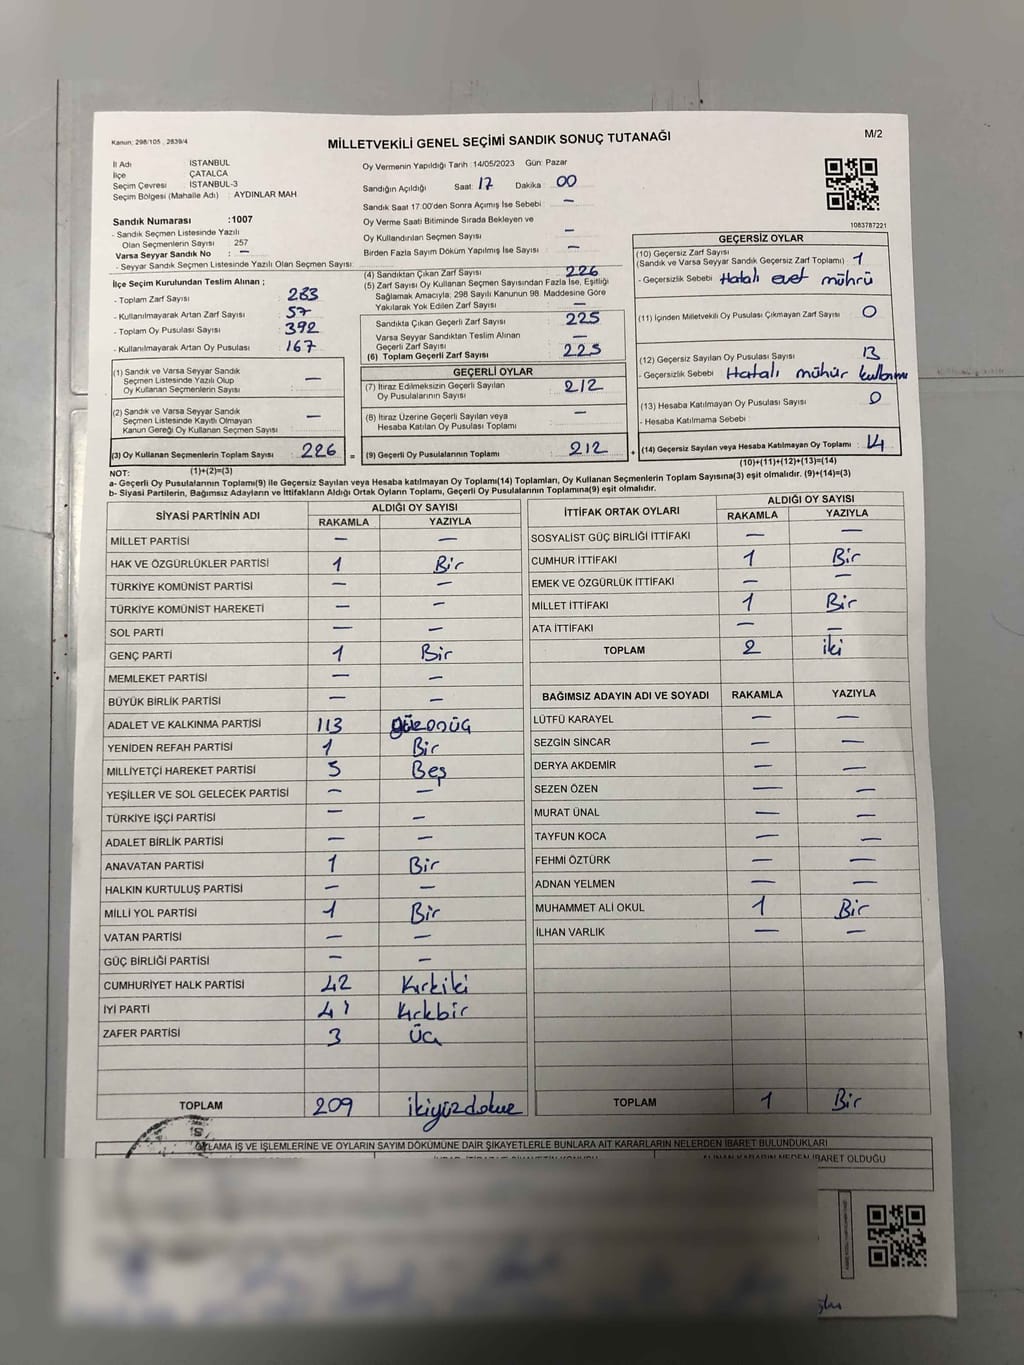 Kanun: 298/105 , 2839/4
MİLLETVEKİLİ GENEL SEÇİMİ SANDIK SONUÇ TUTANAĞI
M/2
İl Adı : İSTANBUL
İlçe : ÇATALCA
Seçim Çevresi : İSTANBUL-3
Seçim Bölgesi (Mahalle Adı) : AYDINLAR MAH
Sandık Numarası :1007
- Sandık Seçmen Listesinde Yazılı
Olan Seçmenlerin Sayısı : 257
Varsa Seyyar Sandık No : —
- Seyyar Sandık Seçmen Listesinde Yazılı Olan Seçmen Sayısı:
İlçe Seçim Kurulundan Teslim Alınan ;
- Toplam Zarf Sayısı : 283
- Kullanılmayarak Artan Zarf Sayısı : 57
- Toplam Oy Pusulası Sayısı : 392
- Kullanılmayarak Artan Oy Pusulası : 167
(1) Sandık ve Varsa Seyyar Sandık
Seçmen Listesinde Yazılı Olup
Oy Kullanan Seçmenlerin Sayısı : —
(2) Sandık ve Varsa Seyyar Sandık
Seçmen Listesinde Kayıtlı Olmayan
Kanun Gereği Oy Kullanan Seçmen Sayısı : —
(3) Oy Kullanan Seçmenlerin Toplam Sayısı : 226 =
Oy Vermenin Yapıldığı Tarih : 14/05/2023 Gün: Pazar
Sandığın Açıldığı Saat: 17 Dakika 00
Sandık Saat 17:00'den Sonra Açılmış İse Sebebi : —
Oy Verme Saati Bitiminde Sırada Bekleyen ve
Oy Kullandırılan Seçmen Sayısı : —
Birden Fazla Sayım Döküm Yapılmış İse Sayısı : —
(4) Sandıktan Çıkan Zarf Sayısı : 226
(5) Zarf Sayısı Oy Kullanan Seçmen Sayısından Fazla İse, Eşitliği
Sağlamak Amacıyla; 298 Sayılı Kanunun 98. Maddesine Göre
Yakılarak Yok Edilen Zarf Sayısı : —
Sandıkta Çıkan Geçerli Zarf Sayısı : 225
Varsa Seyyar Sandıktan Teslim Alınan
Geçerli Zarf Sayısı : —
(6) Toplam Geçerli Zarf Sayısı : 225
GEÇERLİ OYLAR
(7) İtiraz Edilmeksizin Geçerli Sayılan
Oy Pusulalarının Sayısı : 212
(8) İtiraz Üzerine Geçerli Sayılan veya
Hesaba Katılan Oy Pusulası Toplamı : —
(9) Geçerli Oy Pusulalarının Toplamı : 212 +
1083787221
GEÇERSİZ OYLAR
(10) Geçersiz Zarf Sayısı
(Sandık ve Varsa Seyyar Sandık Geçersiz Zarf Toplamı) : 1
- Geçersizlik Sebebi : Hatalı evet mührü
(11) İçinden Milletvekili Oy Pusulası Çıkmayan Zarf Sayısı : 0
(12) Geçersiz Sayılan Oy Pusulası Sayısı : 13
- Geçersizlik Sebebi : Hatalı mühür
(13) Hesaba Katılmayan Oy Pusulası Sayısı : 0
- Hesaba Katılmama Sebebi :
(14) Geçersiz Sayılan veya Hesaba Katılmayan Oy Toplamı : 14
NOT: (1)+(2)=(3) (10)+(11)+(12)+(13)=(14)
a- Geçerli Oy Pusulalarının Toplamı(9) ile Geçersiz Sayılan veya Hesaba katılmayan Oy Toplamı(14) Toplamları, Oy Kullanan Seçmenlerin Toplam Sayısına(3) eşit olmalıdır. (9)+(14)=(3)
b- Siyasi Partilerin, Bağımsız Adayların ve İttifakların Aldığı Ortak Oyların Toplamı, Geçerli Oy Pusulalarının Toplamına(9) eşit olmalıdır.
SİYASİ PARTİNİN ADI ALDIĞI OY SAYISI
RAKAMLA YAZIYLA
MİLLET PARTİSİ — —
HAK VE ÖZGÜRLÜKLER PARTİSİ 1 Bir
TÜRKİYE KOMÜNİST PARTİSİ — —
TÜRKİYE KOMÜNİST HAREKETİ — —
SOL PARTİ — —
GENÇ PARTİ 1 Bir
MEMLEKET PARTİSİ — —
BÜYÜK BİRLİK PARTİSİ — —
ADALET VE KALKINMA PARTİSİ 113
YENİDEN REFAH PARTİSİ 1 Bir
MİLLİYETÇİ HAREKET PARTİSİ 5 Beş
YEŞİLLER VE SOL GELECEK PARTİSİ — —
TÜRKİYE İŞÇİ PARTİSİ — —
ADALET BİRLİK PARTİSİ — —
ANAVATAN PARTİSİ 1 Bir
HALKIN KURTULUŞ PARTİSİ — —
MİLLİ YOL PARTİSİ 1 Bir
VATAN PARTİSİ — —
GÜÇ BİRLİĞİ PARTİSİ — —
CUMHURİYET HALK PARTİSİ 42 Kırkiki
İYİ PARTİ 41 Kırkbir
ZAFER PARTİSİ 3 Üç
TOPLAM 209 ikiyüzdokuz
İTTİFAK ORTAK OYLARI ALDIĞI OY SAYISI
RAKAMLA YAZIYLA
SOSYALİST GÜÇ BİRLİĞİ İTTİFAKI — —
CUMHUR İTTİFAKI 1 Bir
EMEK VE ÖZGÜRLÜK İTTİFAKI — —
MİLLET İTTİFAKI 1 Bir
ATA İTTİFAKI — —
TOPLAM 2 iki
BAĞIMSIZ ADAYIN ADI VE SOYADI RAKAMLA YAZIYLA
LÜTFÜ KARAYEL — —
SEZGİN SİNCAR — —
DERYA AKDEMİR — —
SEZEN ÖZEN — —
MURAT ÜNAL — —
TAYFUN KOCA — —
FEHMİ ÖZTÜRK — —
ADNAN YELMEN — —
MUHAMMET ALİ OKUL 1 Bir
İLHAN VARLIK — —
TOPLAM 1 Bir
OYLAMA İŞ VE İŞLEMLERİNE VE OYLARIN SAYIM DÖKÜMÜNE DAİR ŞİKAYETLERLE BUNLARA AİT KARARLARIN NELERDEN İBARET BULUNDUKLARI
ALINAN KARARIN NEDEN İBARET OLDUĞU